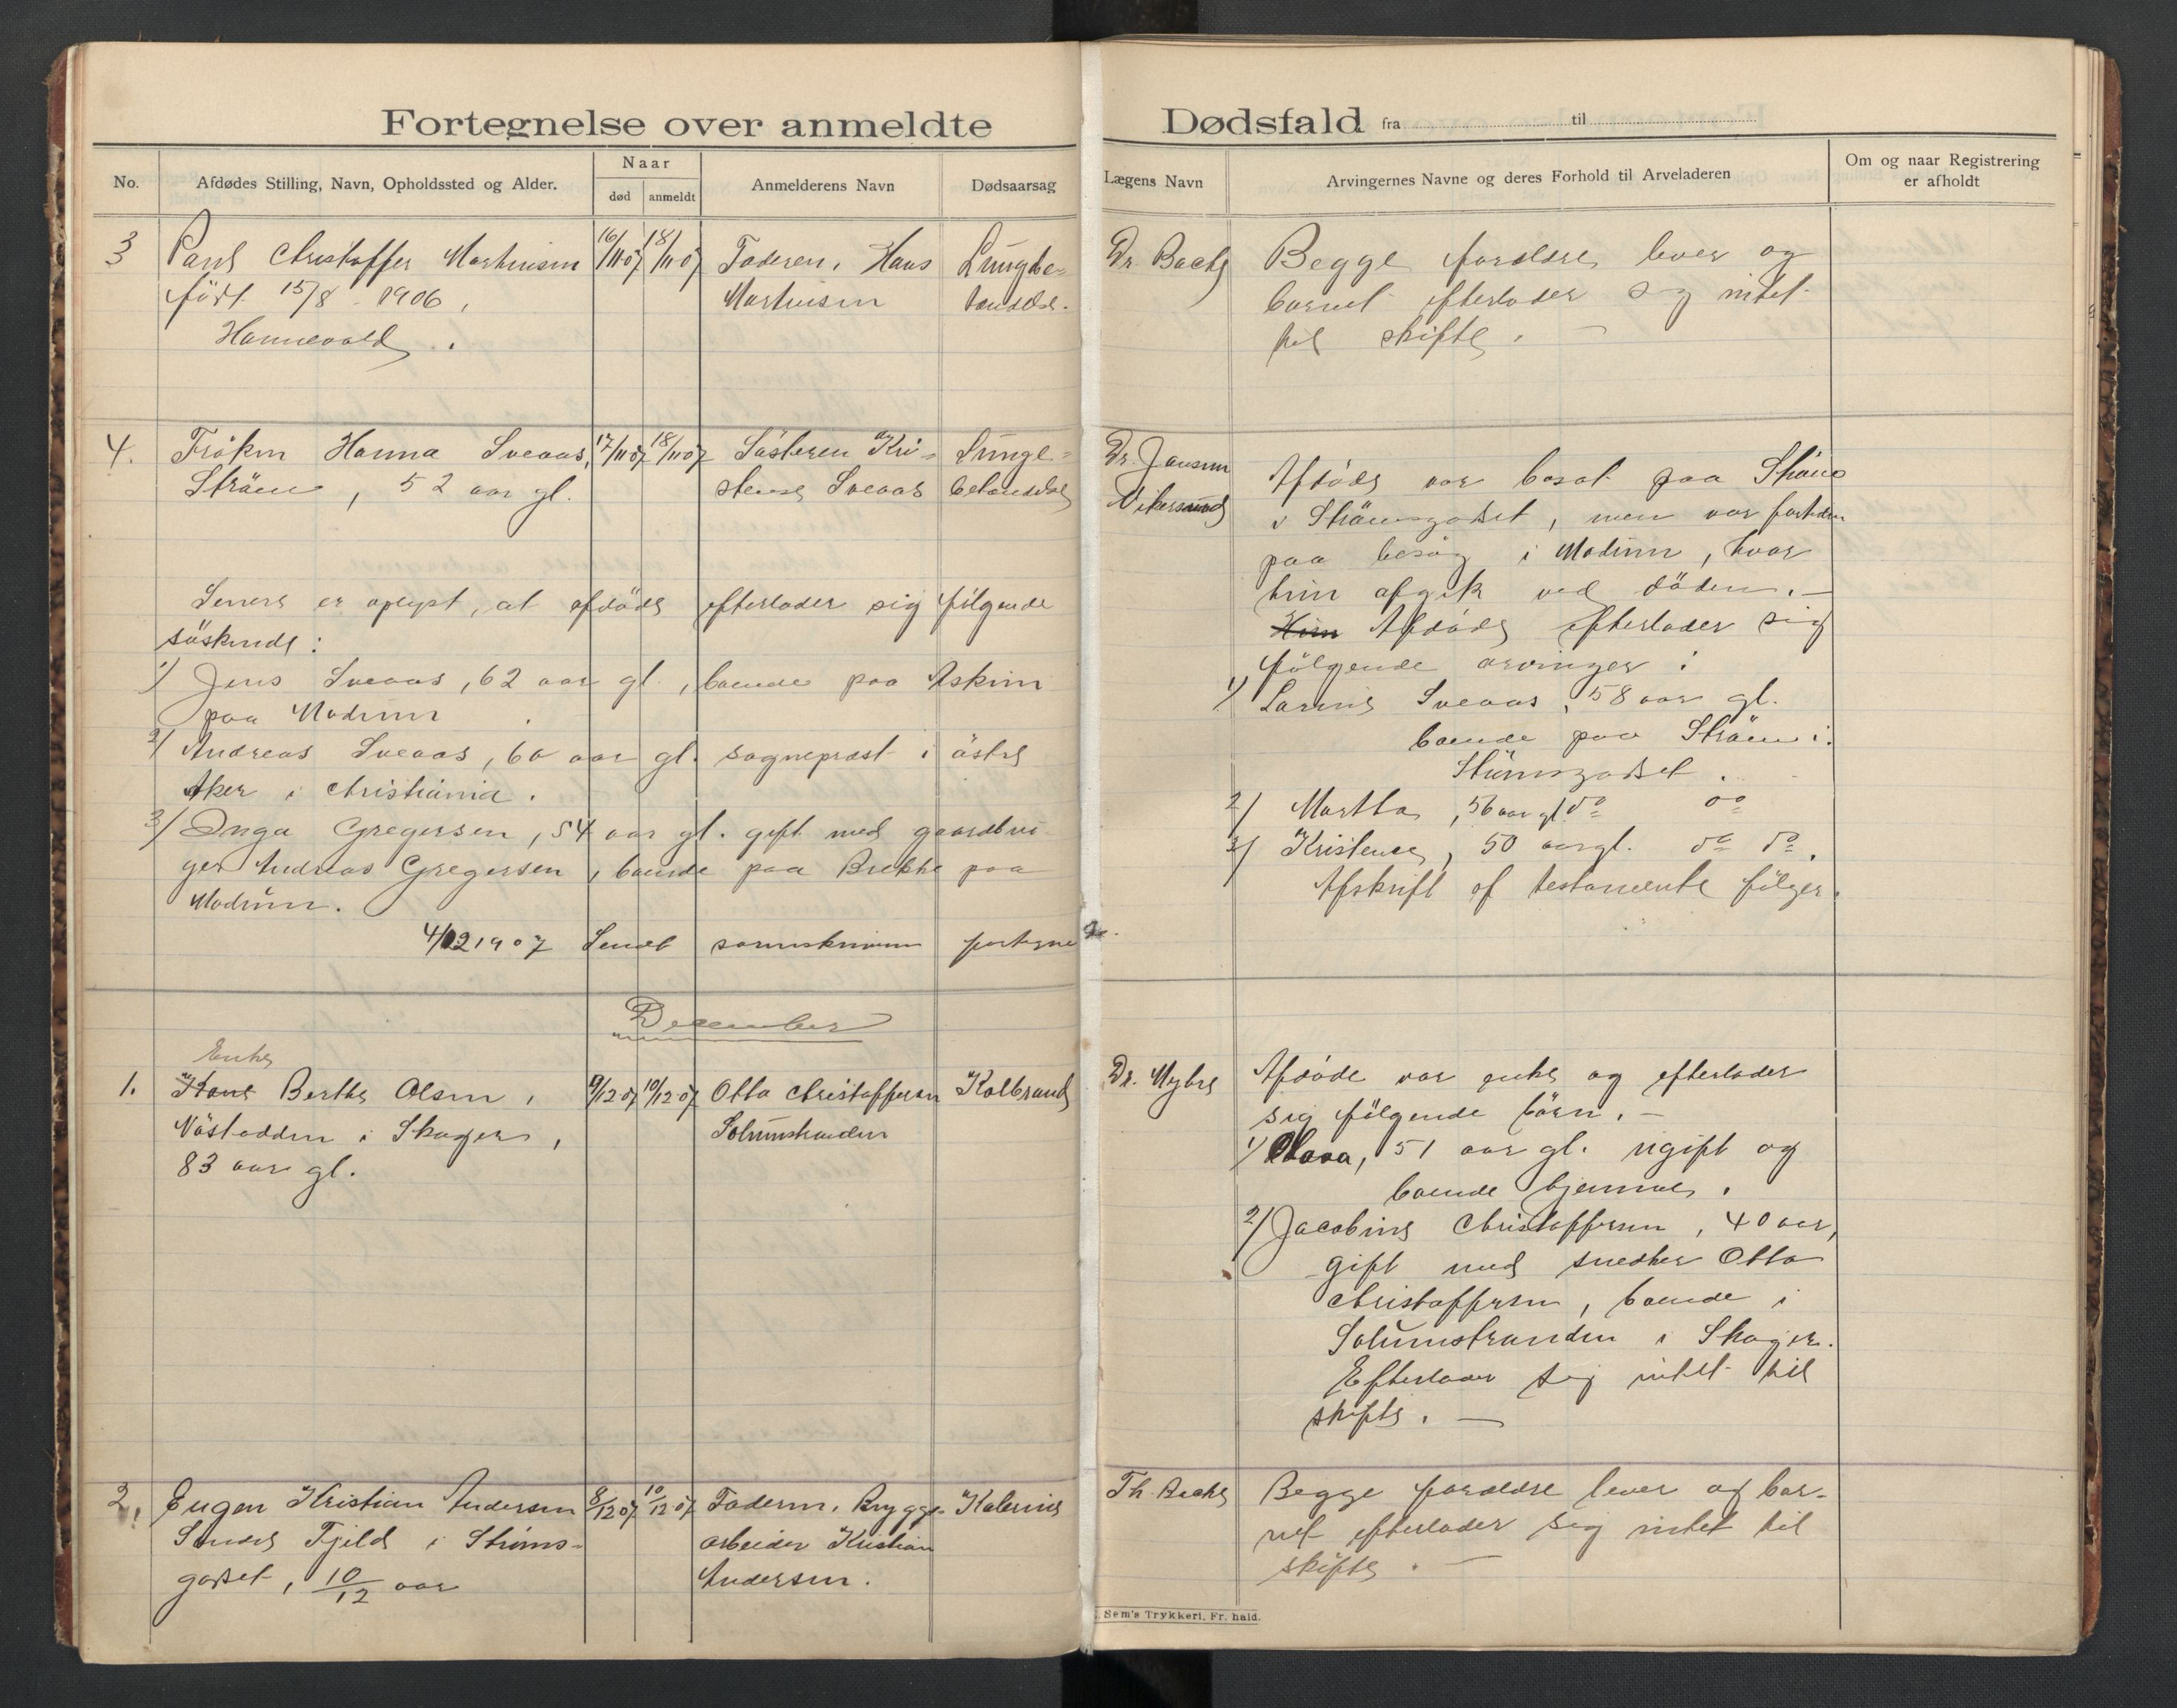 Fortegnelse over anmeldte Dødsfald fra til
No.
Afdødes Stilling, Navn, Opholdssted og Alder.
Naar
død
anmeldt
Anmelderens Navn
Dødsaarsag
Lægens Navn
Arvingernes Navne og deres Forhold til Arveladeren
Om og naar Registrering
er afholdt
3
Paul Christoffer Martinsen
født 15/8 - 1906,
Hannevold.
16/11 07
18/11 07
Faderen, Hans
Martinsen
Lungbe-
tændelse.
Dr. Backe
Begge forældre lever og
barnet efterlader sig intet
til skifte. —
4.
Frøken Hanna Sveaas,
Strøm, 52 aar gl.
17/11 07
18/11 07
Søsteren Kri-
stense Sveaas
Lunge-
betændelse
Dr. Jansen
Vikersund
Afdøde var bosat paa Strøm
i Strømsgodset, men var fortiden
paa besøg i Modum, hvor
hun afgik ved døden. —
Hun Afdøde efterlader sig
følgende arvinger:
1/ Larine Sveaas, 58 aar gl.
boende paa Strøm i
Strømsgodset.
2/ Martha, 56 aar gl. do do
3/ Kristense, 50 aar gl. do do.
Afskrift af testamente følger.
Senere er oplyst, at afdøde efterlader sig følgende
søskende:
1/ Jens Sveaas, 62 aar gl., boende paa Askim
paa Modum.
2/ Andreas Sveaas, 60 aar gl. sogneprest i østre
Aker i Christiania.
3/ Inga Gregersen, 54 aar gl. gift med gaardbru-
ger Andreas Gregersen, boende paa Brekke paa
Modum.
4/12 1907 Sendt sorenskriveren
December
1.
Enke
Kone Berthe Olsen,
Nøstodden i Skoger,
83 aar gl.
9/12 07
10/12 07
Otto Christoffersen
Solumstranden
Kolbrand
Dr. Myhre
Afdøde var enke og efterlader
sig følgende børn. —
1/ Olava, 51 aar gl. ugift og
boende hjemme.
2/ Jacobine Christoffersen, 40 aar,
gift med snedker Otto
Christoffersen, boende i
Solumstranden i Skoger.
Efterlader sig intet til
skifte. —
2.
Eugen Kristian Andersen
Søndre Fjeld i Strøms-
godset, 10/12 aar
8/12 07
10/12 07
Faderen, Brygge-
arbeider Kristian
Andersen.
Kolerine
Th. Backe
Begge forældre lever og bar-
net efterlader sig intet til
skifte. —
Sem's Trykkeri, Fr. hald.